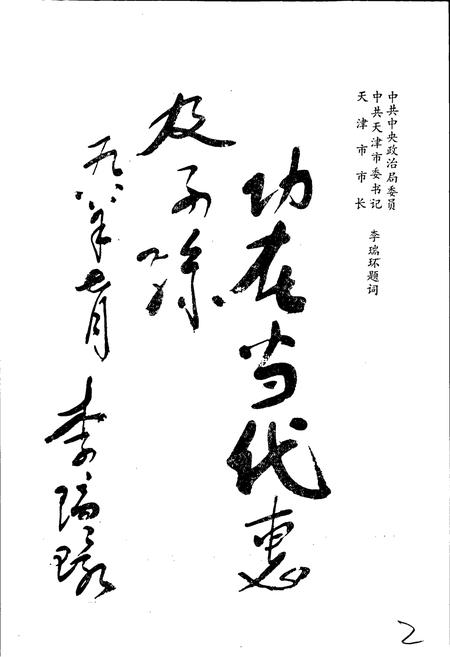 中共中央政治局委员
中共天津市委书记
天津市市长
李瑞环题词
功在当代惠
及子孫
九八八年七月
李瑞环
2